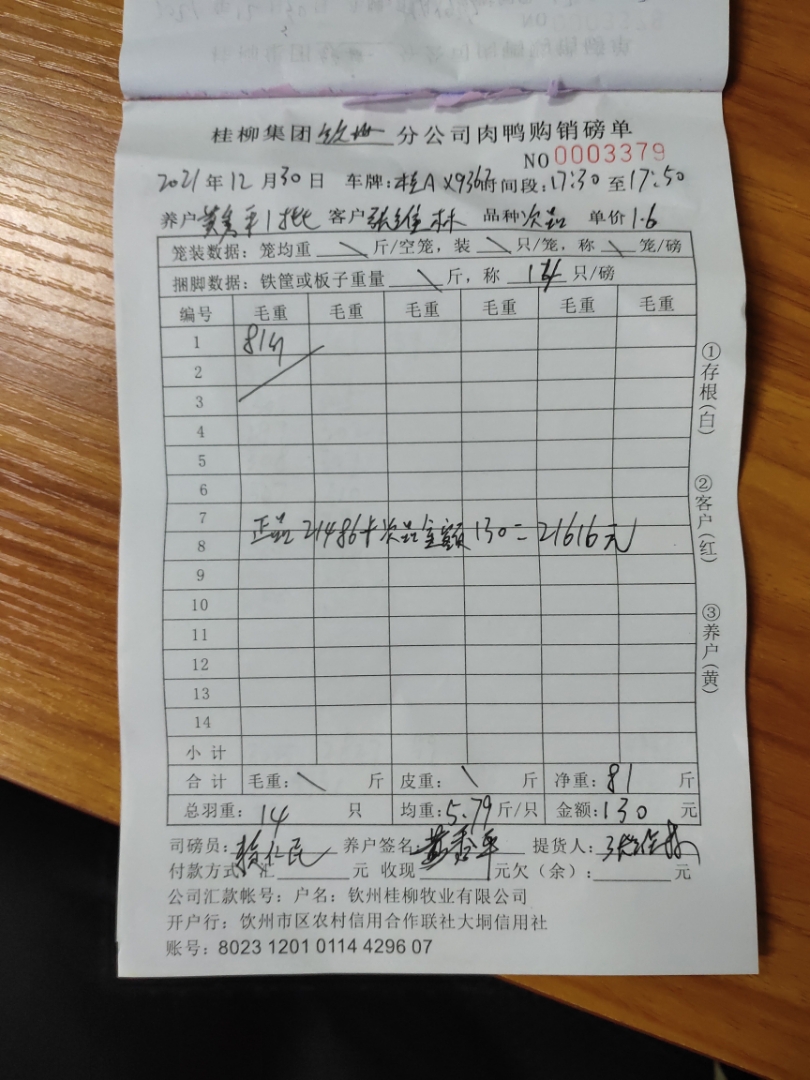 桂柳集团钦州分公司肉鸭购销磅单
NO 0003379
2021年12月30日 车牌:桂A X9362 时间段:17:30至17:50
养户黄秀平1批 客户张维林 品种次品 单价1.6
笼装数据:笼均重\斤/空笼,装\只/笼,称\笼/磅
捆脚数据:铁筐或板子重量\斤,称14只/磅
编号 毛重 毛重 毛重 毛重 毛重 毛重
1 81斤
2
3
4
5
6
7
正品21486+次品金额130=21616元
8
9
10
11
12
13
14
小计
合计 毛重:\斤 皮重:\斤 净重:81斤
总羽重:14只 均重:5.79斤/只 金额:130元
司磅员: 养户签名: 提货人:张维林
付款方式:汇 元 收现 元欠(余): 元
公司汇款帐号:户名:钦州桂柳牧业有限公司
开户行:钦州市区农村信用合作联社大垌信用社
账号:8023 1201 0114 4296 07
①存根(白)
②客户(红)
③养户(黄)